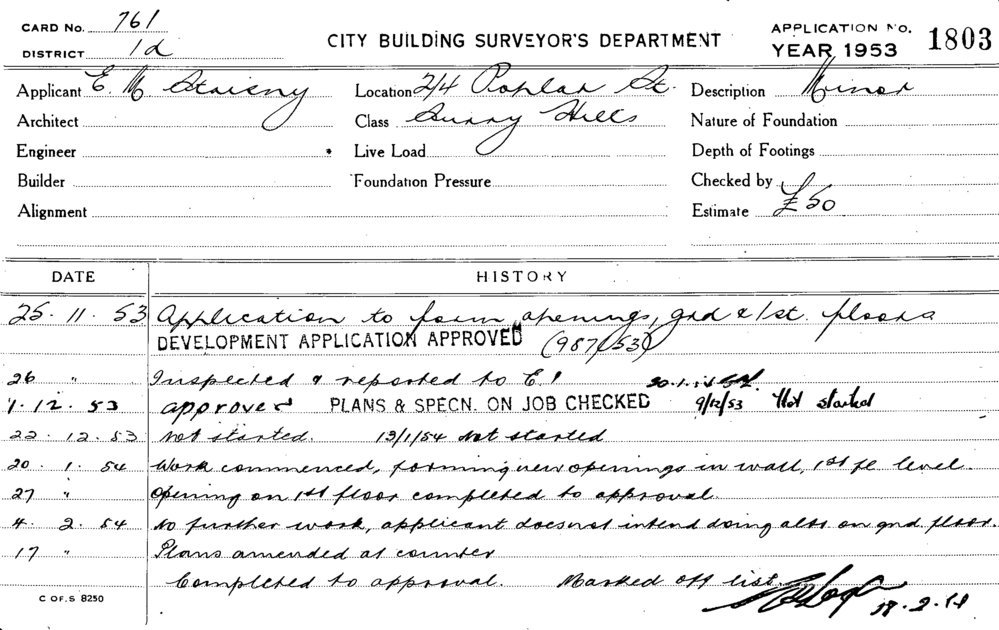 CARD No. 761
DISTRICT 1d
CITY BUILDING SURVEYOR'S DEPARTMENT
APPLICATION No. 1803
YEAR 1953
Applicant E. M. Location 2/4 Poplar St. Description Minor
Architect Class Surry Hills Nature of Foundation
Engineer Live Load Depth of Footings
Builder Foundation Pressure Checked by
Alignment Estimate £50
DATE HISTORY
25. 11. 53 Application to form openings, gnd & 1st. floors
DEVELOPMENT APPLICATION APPROVED (987/53)
26 " Inspected & reported to E!
1. 12. 53 approved PLANS & SPECN. ON JOB CHECKED 9/12/53 Not started
22. 12. 53 Not started. 13/1/54 Not started
20. 1. 54 Work commenced, forming new openings in wall, 1st fl. level.
27 " Opening on 1st floor completed to approval.
4. 2. 54 No further work, applicant does not intend doing altr on gnd. floor.
17 " Plans amended at counter
Completed to approval. Marked off list.
C OF.S 8250